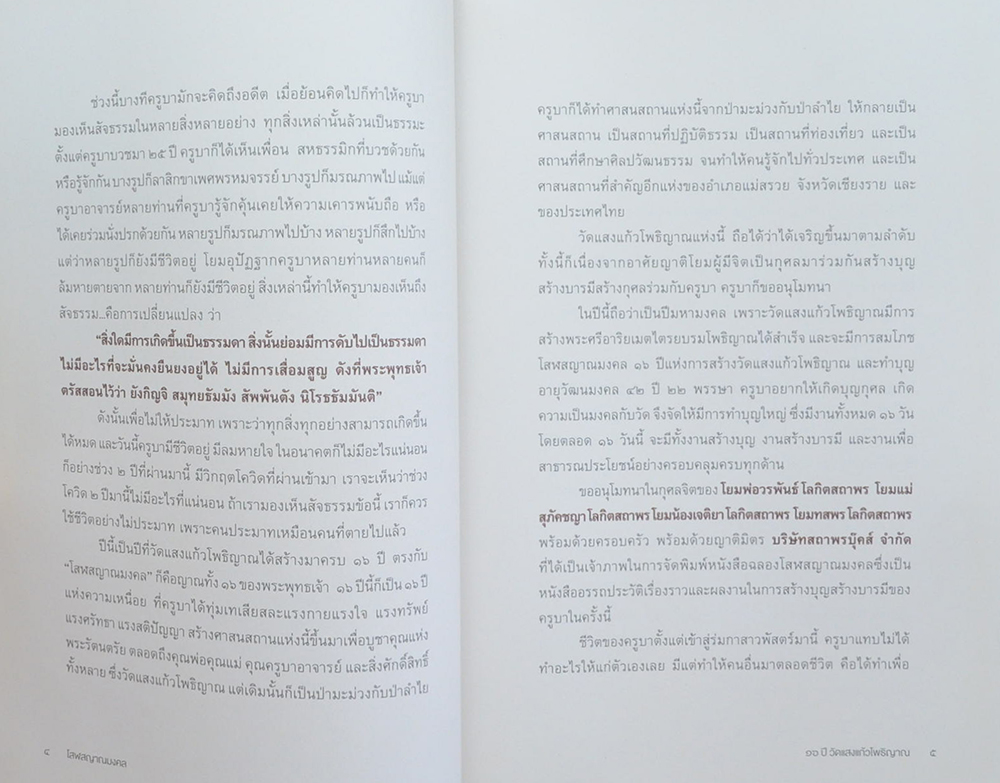 ช่วงนี้บางทีครูบามักจะคิดถึงอดีต เมื่อย้อนคิดไปก็ทำให้ครูบา
มองเห็นสัจธรรมในหลายสิ่งหลายอย่าง ทุกสิ่งเหล่านั้นล้วนเป็นธรรมะ
ตั้งแต่ครูบาบวชมา ๒๕ ปี ครูบาก็ได้เห็นเพื่อน สหธรรมิกที่บวชด้วยกัน
หรือรู้จักกัน บางรูปก็ลาสิกขาเพศพรหมจรรย์ บางรูปก็มรณภาพไป แม้แต่
ครูบาอาจารย์หลายท่านที่ครูบารู้จักคุ้นเคยให้ความเคารพนับถือ หรือ
ได้เคยร่วมนั่งปรกด้วยกัน หลายรูปก็มรณภาพไปบ้าง หลายรูปก็สึกไปบ้าง
แต่ว่าหลายรูปก็ยังมีชีวิตอยู่ โยมอุปัฏฐากครูบาหลายท่านหลายคนก็
ล้มหายตายจาก หลายท่านก็ยังมีชีวิตอยู่ สิ่งเหล่านี้ทำให้ครูบามองเห็นถึง
สัจธรรม...คือการเปลี่ยนแปลง ว่า
"สิ่งใดมีการเกิดขึ้นเป็นธรรมดา สิ่งนั้นย่อมมีการดับไปเป็นธรรมดา
ไม่มีอะไรที่จะมั่นคงยืนยงอยู่ได้ ไม่มีการเสื่อมสูญ ดังที่พระพุทธเจ้า
ตรัสสอนไว้ว่า ยังกิญจิ สมุทยธัมมัง สัพพันตัง นิโรธธัมมันติ"
ดังนั้นเพื่อไม่ให้ประมาท เพราะว่าทุกสิ่งทุกอย่างสามารถเกิดขึ้น
ได้หมด และวันนี้ครูบามีชีวิตอยู่ มีลมหายใจ ในอนาคตก็ไม่มีอะไรแน่นอน
ก็อย่างช่วง ๒ ปีที่ผ่านมานี้ มีวิกฤตโควิดที่ผ่านเข้ามา เราจะเห็นว่าช่วง
โควิด ๒ ปีมานี้ไม่มีอะไรที่แน่นอน ถ้าเรามองเห็นสัจธรรมข้อนี้ เราก็ควร
ใช้ชีวิตอย่างไม่ประมาท เพราะคนประมาทเหมือนคนที่ตายไปแล้ว
ปีนี้เป็นปีที่วัดแสงแก้วโพธิญาณได้สร้างมาครบ ๑๖ ปี ตรงกับ
"โสฬสญาณมงคล" ก็คือญาณทั้ง ๑๖ ของพระพุทธเจ้า ๑๖ ปีนี้ก็เป็น ๑๖ ปี
แห่งความเหนื่อย ที่ครูบาได้ทุ่มเทเสียสละแรงกายแรงใจ แรงทรัพย์
แรงศรัทธา แรงสติปัญญา สร้างศาสนสถานแห่งนี้ขึ้นมาเพื่อบูชาคุณแห่ง
พระรัตนตรัย ตลอดถึงคุณพ่อคุณแม่ คุณครูบาอาจารย์ และสิ่งศักดิ์สิทธิ์
ทั้งหลาย ซึ่งวัดแสงแก้วโพธิญาณ แต่เดิมนั้นก็เป็นป่ามะม่วงกับป่าลำไย
๔ โสฬสญาณมงคล
ครูบาก็ได้ทำศาสนสถานแห่งนี้จากป่ามะม่วงกับป่าลำไย ให้กลายเป็น
ศาสนสถาน เป็นสถานที่ปฏิบัติธรรม เป็นสถานที่ท่องเที่ยว และเป็น
สถานที่ศึกษาศิลปวัฒนธรรม จนทำให้คนรู้จักไปทั่วประเทศ และเป็น
ศาสนสถานที่สำคัญอีกแห่งของอำเภอแม่สรวย จังหวัดเชียงราย และ
ของประเทศไทย
วัดแสงแก้วโพธิญาณแห่งนี้ ถือได้ว่าได้เจริญขึ้นมาตามลำดับ
ทั้งนี้ก็เนื่องจากอาศัยญาติโยมผู้มีจิตเป็นกุศลมาร่วมกันสร้างบุญ
สร้างบารมีสร้างกุศลร่วมกับครูบา ครูบาก็ขออนุโมทนา
ในปีนี้ถือว่าเป็นปีมหามงคล เพราะวัดแสงแก้วโพธิญาณมีการ
สร้างพระศรีอาริยเมตไตรยบรมโพธิญาณได้สำเร็จ และจะมีการสมโภช
โสฬสญาณมงคล ๑๖ ปีแห่งการสร้างวัดแสงแก้วโพธิญาณ และทำบุญ
อายุวัฒนมงคล ๔๒ ปี ๒๒ พรรษา ครูบาอยากให้เกิดบุญกุศล เกิด
ความเป็นมงคลกับวัด จึงจัดให้มีการทำบุญใหญ่ ซึ่งมีงานทั้งหมด ๑๖ วัน
โดยตลอด ๑๖ วันนี้ จะมีทั้งงานสร้างบุญ งานสร้างบารมี และงานเพื่อ
สาธารณประโยชน์อย่างครอบคลุมครบทุกด้าน
ขออนุโมทนาในกุศลจิตของ โยมพ่อวรพันธ์ โลกิตสถาพร โยมแม่
สุภัคชญา โลกิตสถาพร โยมน้องเจติยา โลกิตสถาพร โยมทสพร โลกิตสถาพร
พร้อมด้วยครอบครัว พร้อมด้วยญาติมิตร บริษัทสถาพรบุ๊คส์ จำกัด
ที่ได้เป็นเจ้าภาพในการจัดพิมพ์หนังสือฉลองโสฬสญาณมงคลซึ่งเป็น
หนังสืออรรถประวัติเรื่องราวและผลงานในการสร้างบุญสร้างบารมีของ
ครูบาในครั้งนี้
ชีวิตของครูบาตั้งแต่เข้าสู่ร่มกาสาวพัสตร์มานี้ ครูบาแทบไม่ได้
ทำอะไรให้แก่ตัวเองเลย มีแต่ทำให้คนอื่นมาตลอดชีวิต คือได้ทำเพื่อ
๑๖ ปี วัดแสงแก้วโพธิญาณ ๕